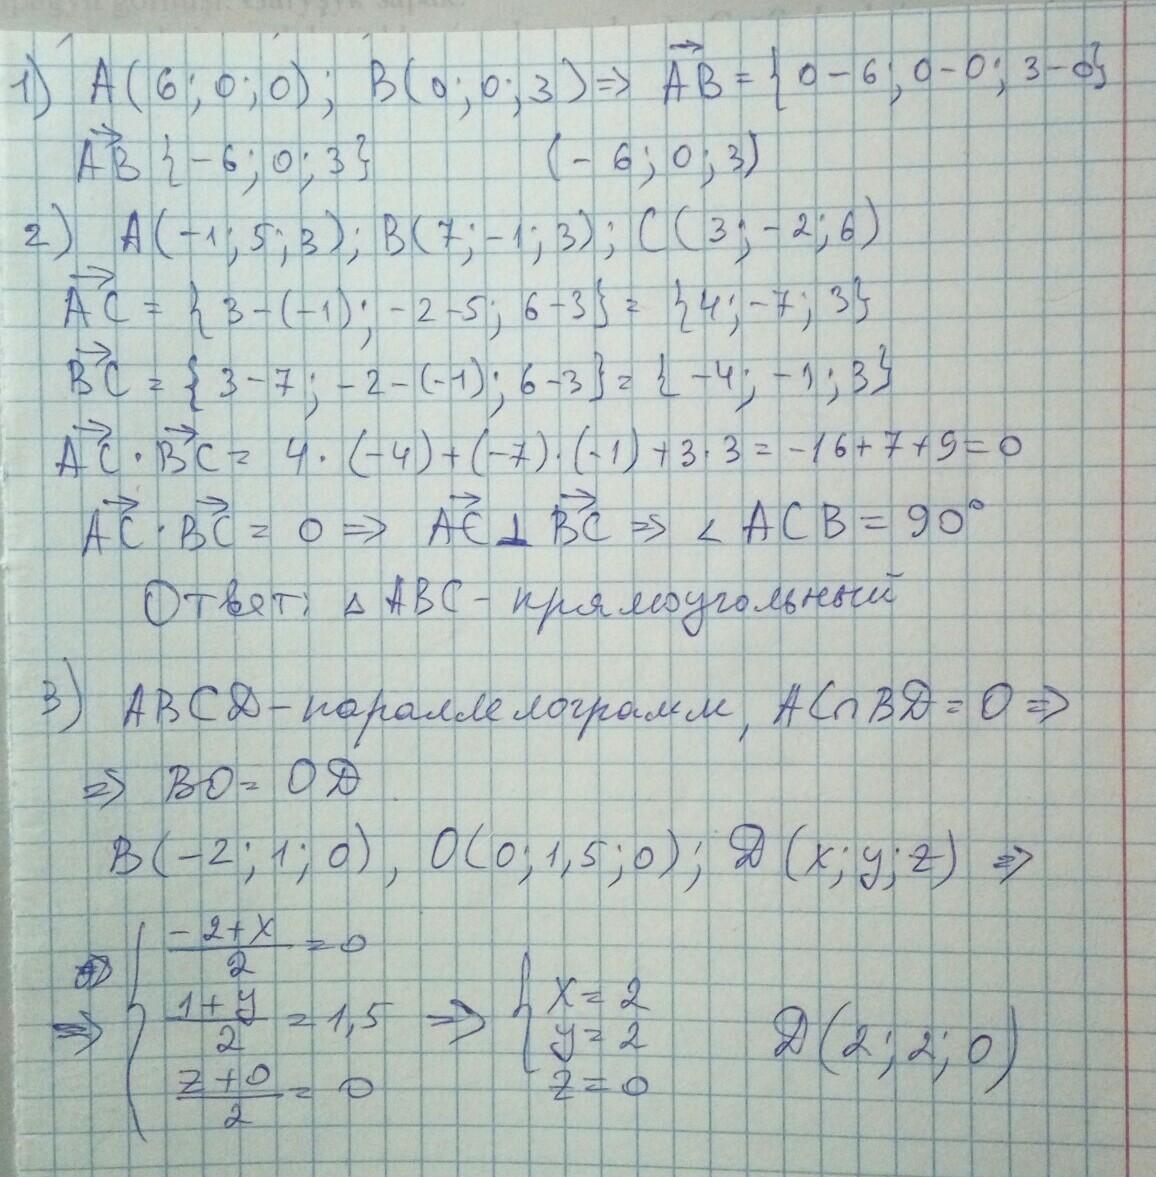 1) A(6;0;0); B(0;0;3) => AB→ = {0-6; 0-0; 3-0}
AB→ {-6; 0; 3} (-6; 0; 3)
2) A(-1; 5; 3); B(7; -1; 3); C(3; -2; 6)
AC→ = {3-(-1); -2-5; 6-3} = {4; -7; 3}
BC→ = {3-7; -2-(-1); 6-3} = {-4; -1; 3}
AC→ · BC→ = 4·(-4)+(-7)·(-1)+3·3 = -16+7+9=0
AC→ · BC→ = 0 => AC→ ⊥ BC→ => ∠ ACB = 90°
Ответ: △ ABC - прямоугольный
3) ABCD - параллелограмм, AC∩BD = O =>
=> BO = OD
B(-2; 1; 0), O(0; 1,5; 0); D(x; y; z) =>
=> { (-2+x)/2 = 0
(1+y)/2 = 1,5 => { x = 2 y = 2 z = 0 D(2; 2; 0)
(z+0)/2 = 0